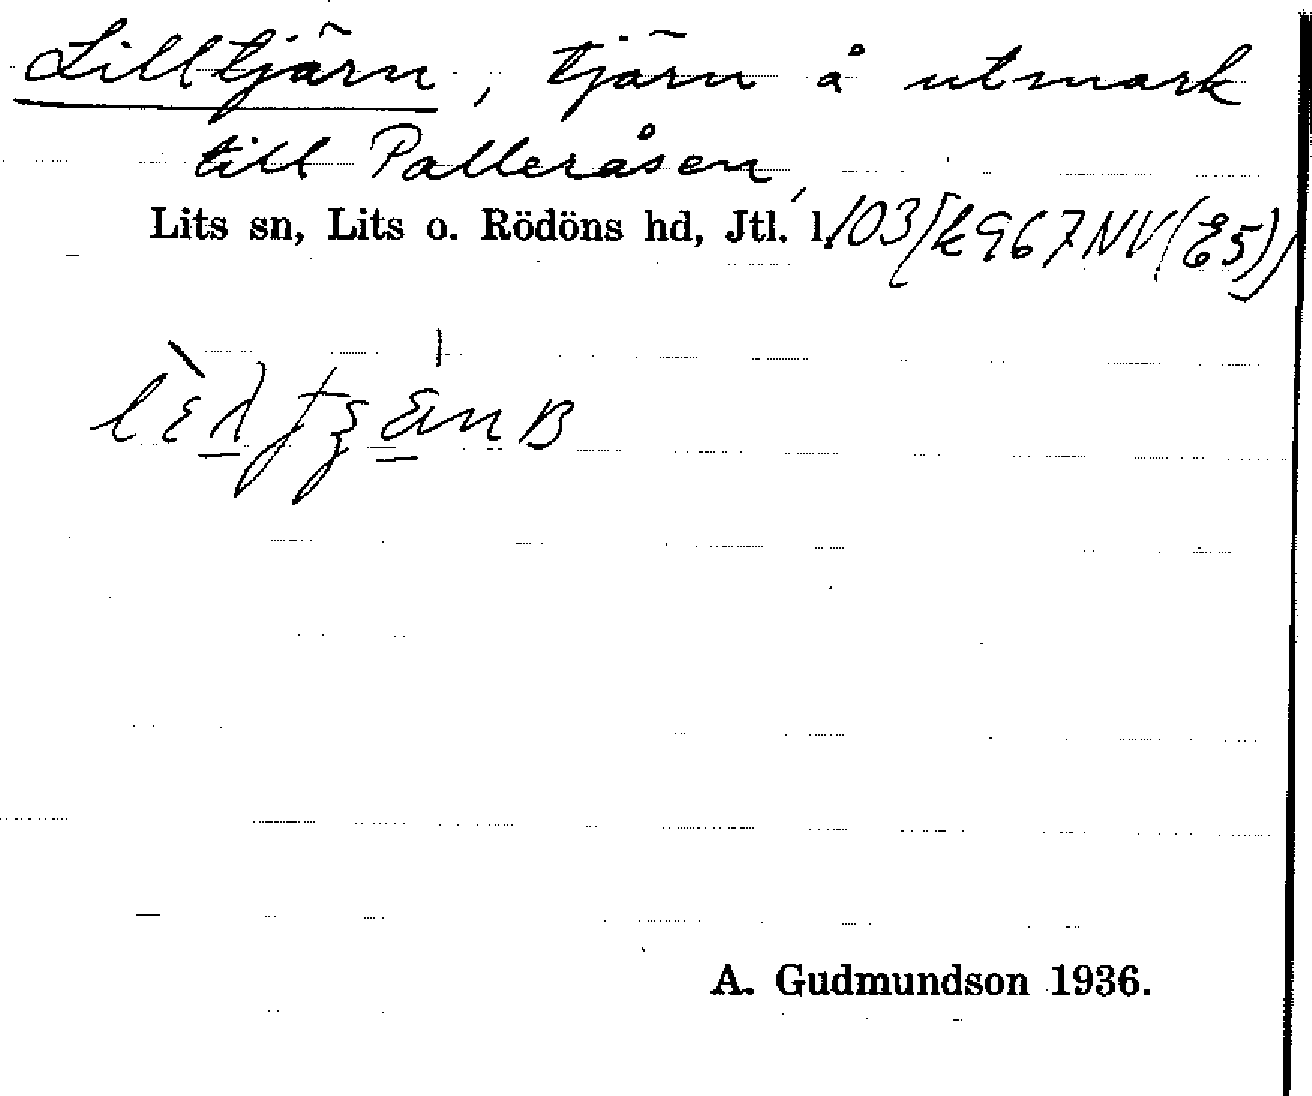 Lilltjärn, tjärn å utmark
till Palleråsen,
Lits sn, Lits o. Rödöns hd, Jtl. l. 103/k967NV(E5))
A. Gudmundson 1936.